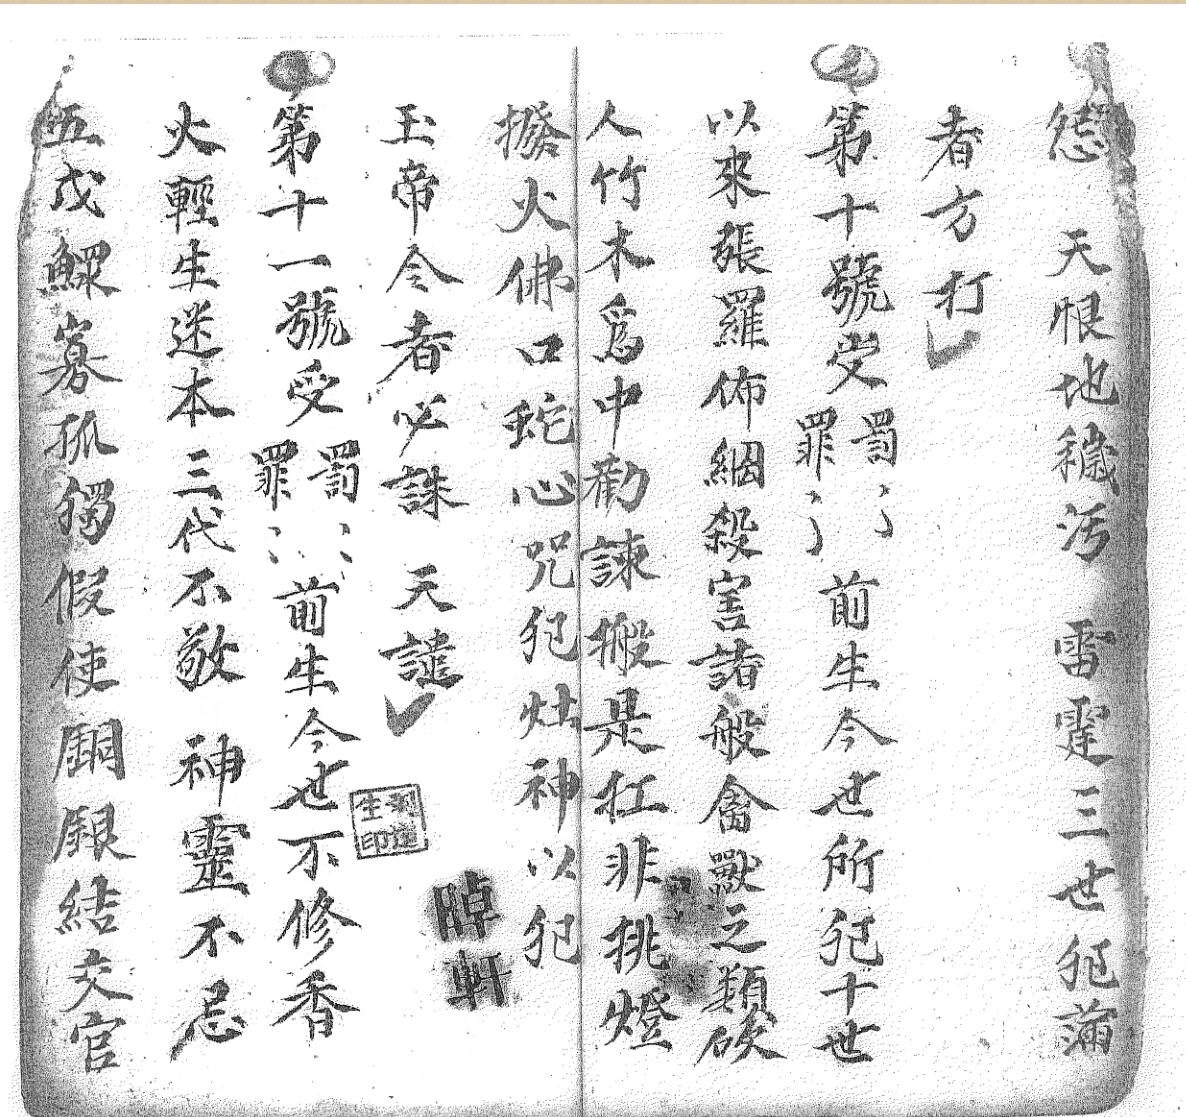 愆 天恨地穢污 雷霆三世犯滿
者方打
第十號受罰罪 前生今世所犯十世
以來張羅佈網殺害諸般禽獸之類砍
人竹木爲中勸諫搬是扛非挑燈
撥火佛口蛇心咒犯灶神以犯
玉帝令者必誅 天譴
第十一號受罰罪 前生今世不修香
火輕生迷本三代不敬 神靈不忌
五戊鰥寡孤獨假使銅銀結交官
生印
軒